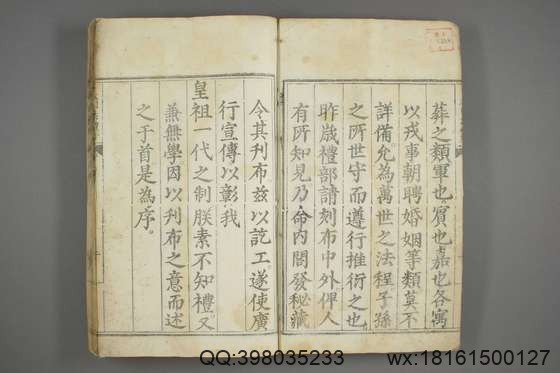 葬之類軍也賓也嘉也各寓
以戎事朝聘婚姻等類莫不
詳備允為萬世之法程子孫
之所世守而遵行推衍之也
昨歲禮部請刻布中外俾人
有所知見乃命內閣發秘藏
令其刊布茲以訖工遂使廣
行宣傳以彰我
皇祖一代之制朕素不知禮又
兼無學因以刊布之意而述
之于首是為序
QQ:398035233
wx:18161500127